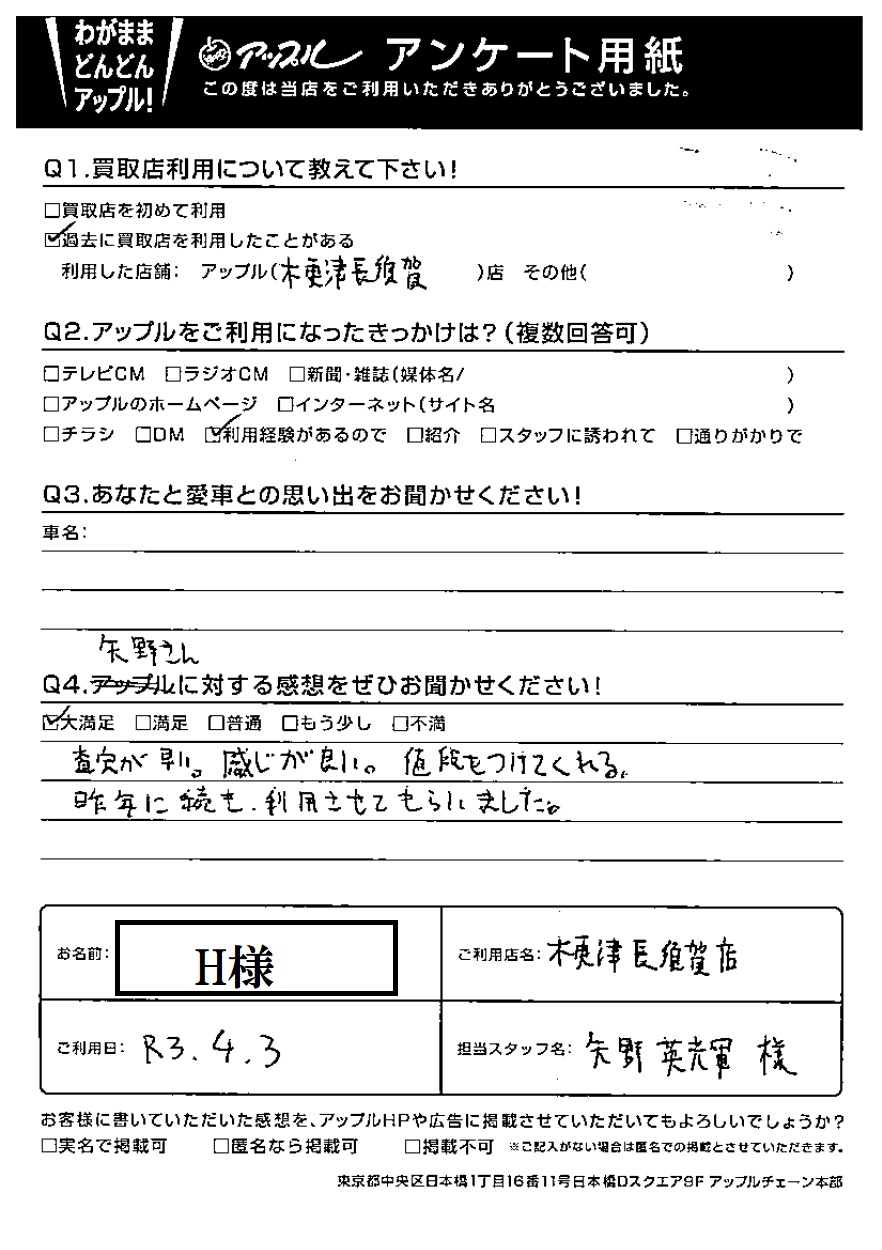 わがまま
どんどん
アップル!
アップル アンケート用紙
この度は当店をご利用いただきありがとうございました。
Q1.買取店利用について教えて下さい!
□買取店を初めて利用
☑過去に買取店を利用したことがある
利用した店舗: アップル(木更津長須賀 )店 その他( )
Q2.アップルをご利用になったきっかけは?(複数回答可)
□テレビCM □ラジオCM □新聞・雑誌(媒体名/ )
□アップルのホームページ □インターネット(サイト名 )
□チラシ □DM ☑利用経験があるので □紹介 □スタッフに誘われて □通りがかりで
Q3.あなたと愛車との思い出をお聞かせください!
車名:
矢野さん
Q4.アップルに対する感想をぜひお聞かせください!
☑大満足 □満足 □普通 □もう少し □不満
査定が早い。感じが良い。値段をつけてくれる。
昨年に続き、利用させてもらいました。
お名前: H様 ご利用店名: 木更津長須賀店
ご利用日: R3.4.3 担当スタッフ名: 矢野 英光輝 様
お客様に書いていただいた感想を、アップルHPや広告に掲載させていただいてもよろしいでしょうか?
□実名で掲載可 □匿名なら掲載可 □掲載不可 ※ご記入がない場合は匿名での掲載とさせていただきます。
東京都中央区日本橋1丁目16番11号日本橋Dスクエア9F アップルチェーン本部